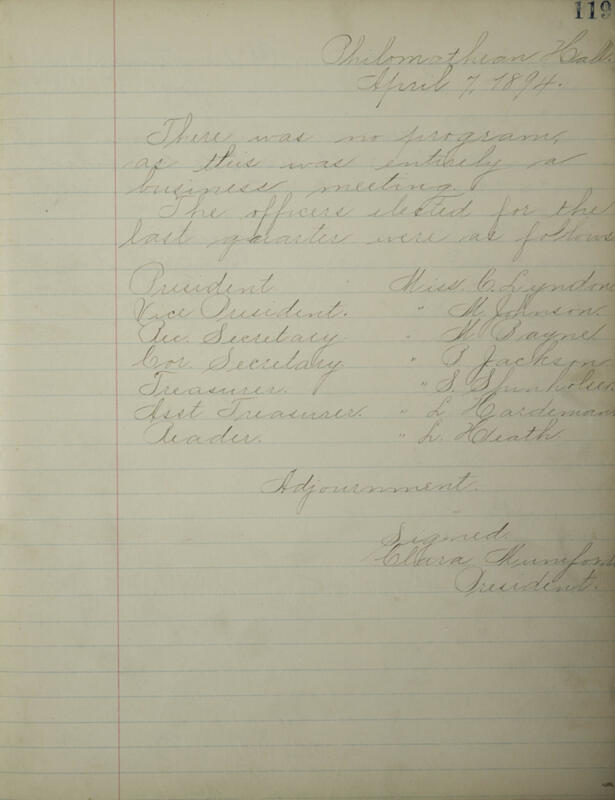 119
Philomathean Hall.
April 7, 1894.
There was no program,
as this was entirely a
business meeting.
The officers elected for the
last quarter were as follows
President Miss C. Lyndon
Vice President. " M. Johnson.
Rec. Secretary " M. Bayne
Cor Secretary " P. Jackson
Treasurer. " S.
Asst Treasurer. " L. Hardeman
Reader. " L. Heath.
Adjournment.
Signed.
Clara Mumford
President.